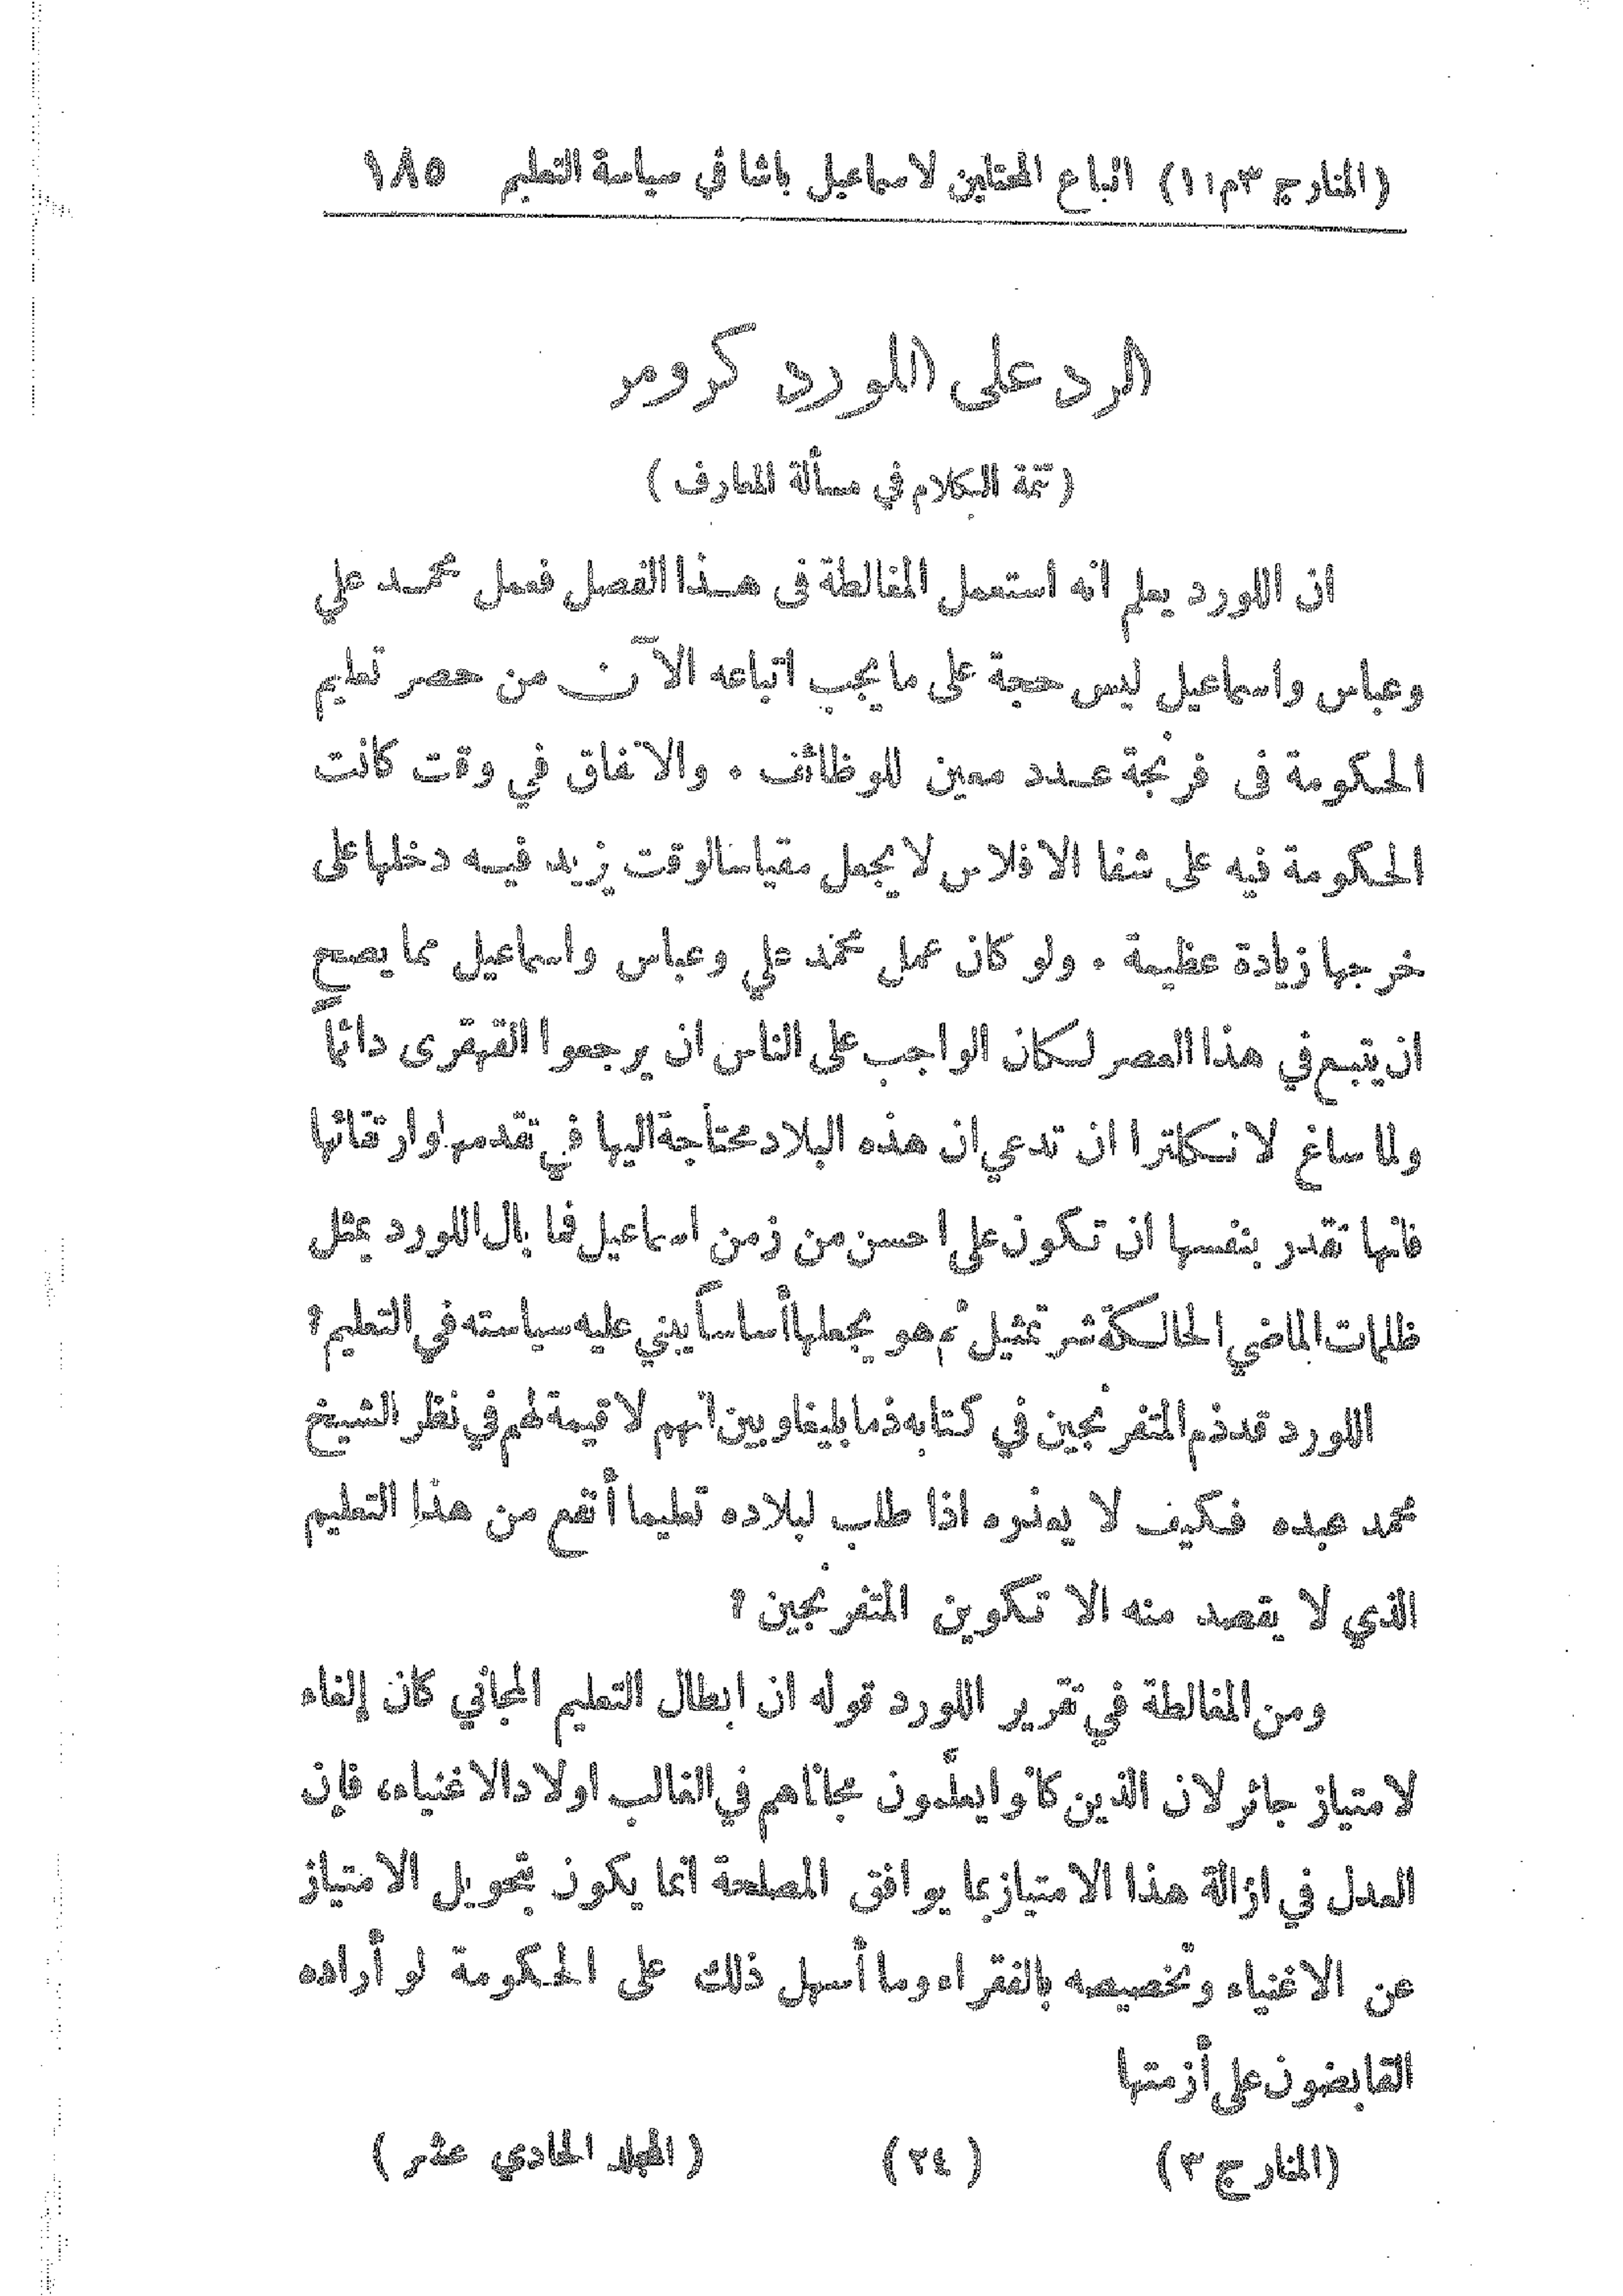 (المنارج ٣م١١) اتباع المحتلين لاسماعيل باشا في سياسة التعليم ١٨٥
الرد على اللورد كرومر
(تتمة الكلام في مسألة المعارف)
ان اللورد يعلم انه استعمل المغالطة فى هذا الفصل فعمل محمد علي
وعباس واسماعيل ليس حجة على ما يجب اتباعه الآن من حصر تعليم
الحكومة فى فرنجة عدد معين للوظائف . والاتفاق في وقت كانت
الحكومة فيه على شفا الافلاس لا يجعل مقياسا لوقت يزيد فيه دخلها على
خرجها زيادة عظيمة . ولو كان عمل محمد علي وعباس واسماعيل مما يصح
ان يتبع في هذا العصر لكان الواجب على الناس ان يرجعوا القهقرى دائماً
ولما ساغ لانكلترا ان تدعي ان هذه البلاد محتاجة اليها في تقدمها وارتقائها
فانها تقدر بنفسها ان تكون على احسن من زمن اسماعيل فما بال اللورد يمثل
ظلمات الماضي الحالكة شر تمثيل ثم هو يجعلها أساساً يبني عليه سياسته في التعليم؟
اللورد قد ذم المتفرنجين في كتابه ذما بليغا وبين انهم لا قيمة لهم في نظر الشيخ
محمد عبده فكيف لا يعذره اذا طلب لبلاده تعليما أنفع من هذا التعليم
الذي لا يقصد منه الا تكوين المتفرنجين؟
ومن المغالطة في تقرير اللورد قوله ان ابطال التعليم المجاني كان إلغاء
لامتياز جائر لان الذين كانوا يعلَّمون مجانا هم في الغالب اولاد الاغنياء، فإن
العدل في ازالة هذا الامتياز بما يوافق المصلحة انما يكون بتحويل الامتياز
عن الاغنياء وتخصيصه بالفقراء وما أسهل ذلك على الحكومة لو أراده
القابضون على أزمتها
(المنارج ٣) (٢٤) (المجلد الحادي عشر)